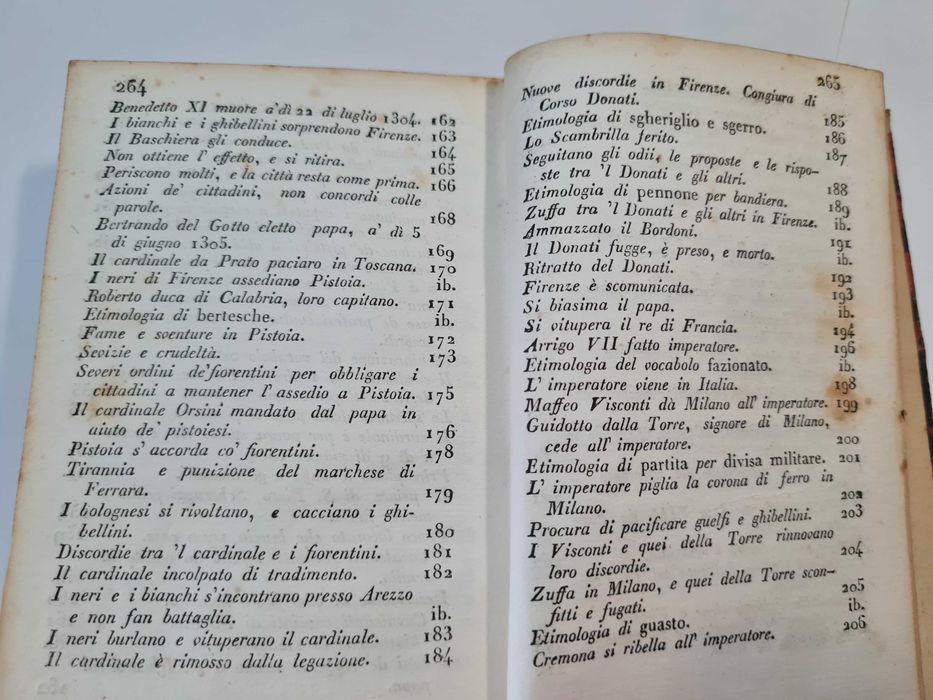 264
Benedetto XI muore a'dì 22 di luglio 1304. 162
I bianchi e i ghibellini sorprendono Firenze. 163
Il Baschiera gli conduce. 164
Non ottiene l' effetto, e si ritira. 165
Periscono molti, e la città resta come prima. 166
Azioni de' cittadini, non concordi colle
parole. 168
Bertrando del Gotto eletto papa, a' dì 5
di giugno 1305. 169
Il cardinale da Prato paciaro in Toscana. 170
I neri di Firenze assediano Pistoia. ib.
Roberto duca di Calabria, loro capitano. 171
Etimologia di bertesche. ib.
Fame e sventure in Pistoia. 172
Sevizie e crudeltà. 173
Severi ordini de'fiorentini per obbligare i
cittadini a mantener l' assedio a Pistoia. 175
Il cardinale Orsini mandato dal papa in
aiuto de' pistoiesi. 176
Pistoia s' accorda co' fiorentini. 178
Tirannia e punizione del marchese di
Ferrara. 179
I bolognesi si rivoltano, e cacciano i ghi-
bellini. 180
Discordie tra 'l cardinale e i fiorentini. 181
Il cardinale incolpato di tradimento. 182
I neri e i bianchi s'incontrano presso Arezzo
e non fan battaglia. ib.
I neri burlano e vituperano il cardinale. 183
Il cardinale è rimosso dalla legazione. 184
265
Nuove discordie in Firenze. Congiura di
Corso Donati. 185
Etimologia di sgheriglio e sgerro. 186
Lo Scambrilla ferito. 187
Seguitano gli odii, le proposte e le rispo-
ste tra 'l Donati e gli altri. 188
Etimologia di pennone per bandiera. 189
Zuffa tra 'l Donati e gli altri in Firenze. ib.
Ammazzato il Bordoni. 191
Il Donati fugge, è preso, e morto. ib.
Ritratto del Donati. 192
Firenze è scomunicata. 193
Si biasima il papa. ib.
Si vitupera il re di Francia. 194
Arrigo VII fatto imperatore. 196
Etimologia del vocabolo fazionato. ib.
L' imperatore viene in Italia. 198
Maffeo Visconti dà Milano all' imperatore. 199
Guidotto dalla Torre, signore di Milano,
cede all' imperatore. 200
Etimologia di partita per divisa militare. 201
L' imperatore piglia la corona di ferro in
Milano. 202
Procura di pacificare guelfi e ghibellini. 203
I Visconti e quei della Torre rinnovano
loro discordie. 204
Zuffa in Milano, e quei della Torre scon-
fitti e fugati. 205
Etimologia di guasto. ib.
Cremona si ribella all' imperatore. 206